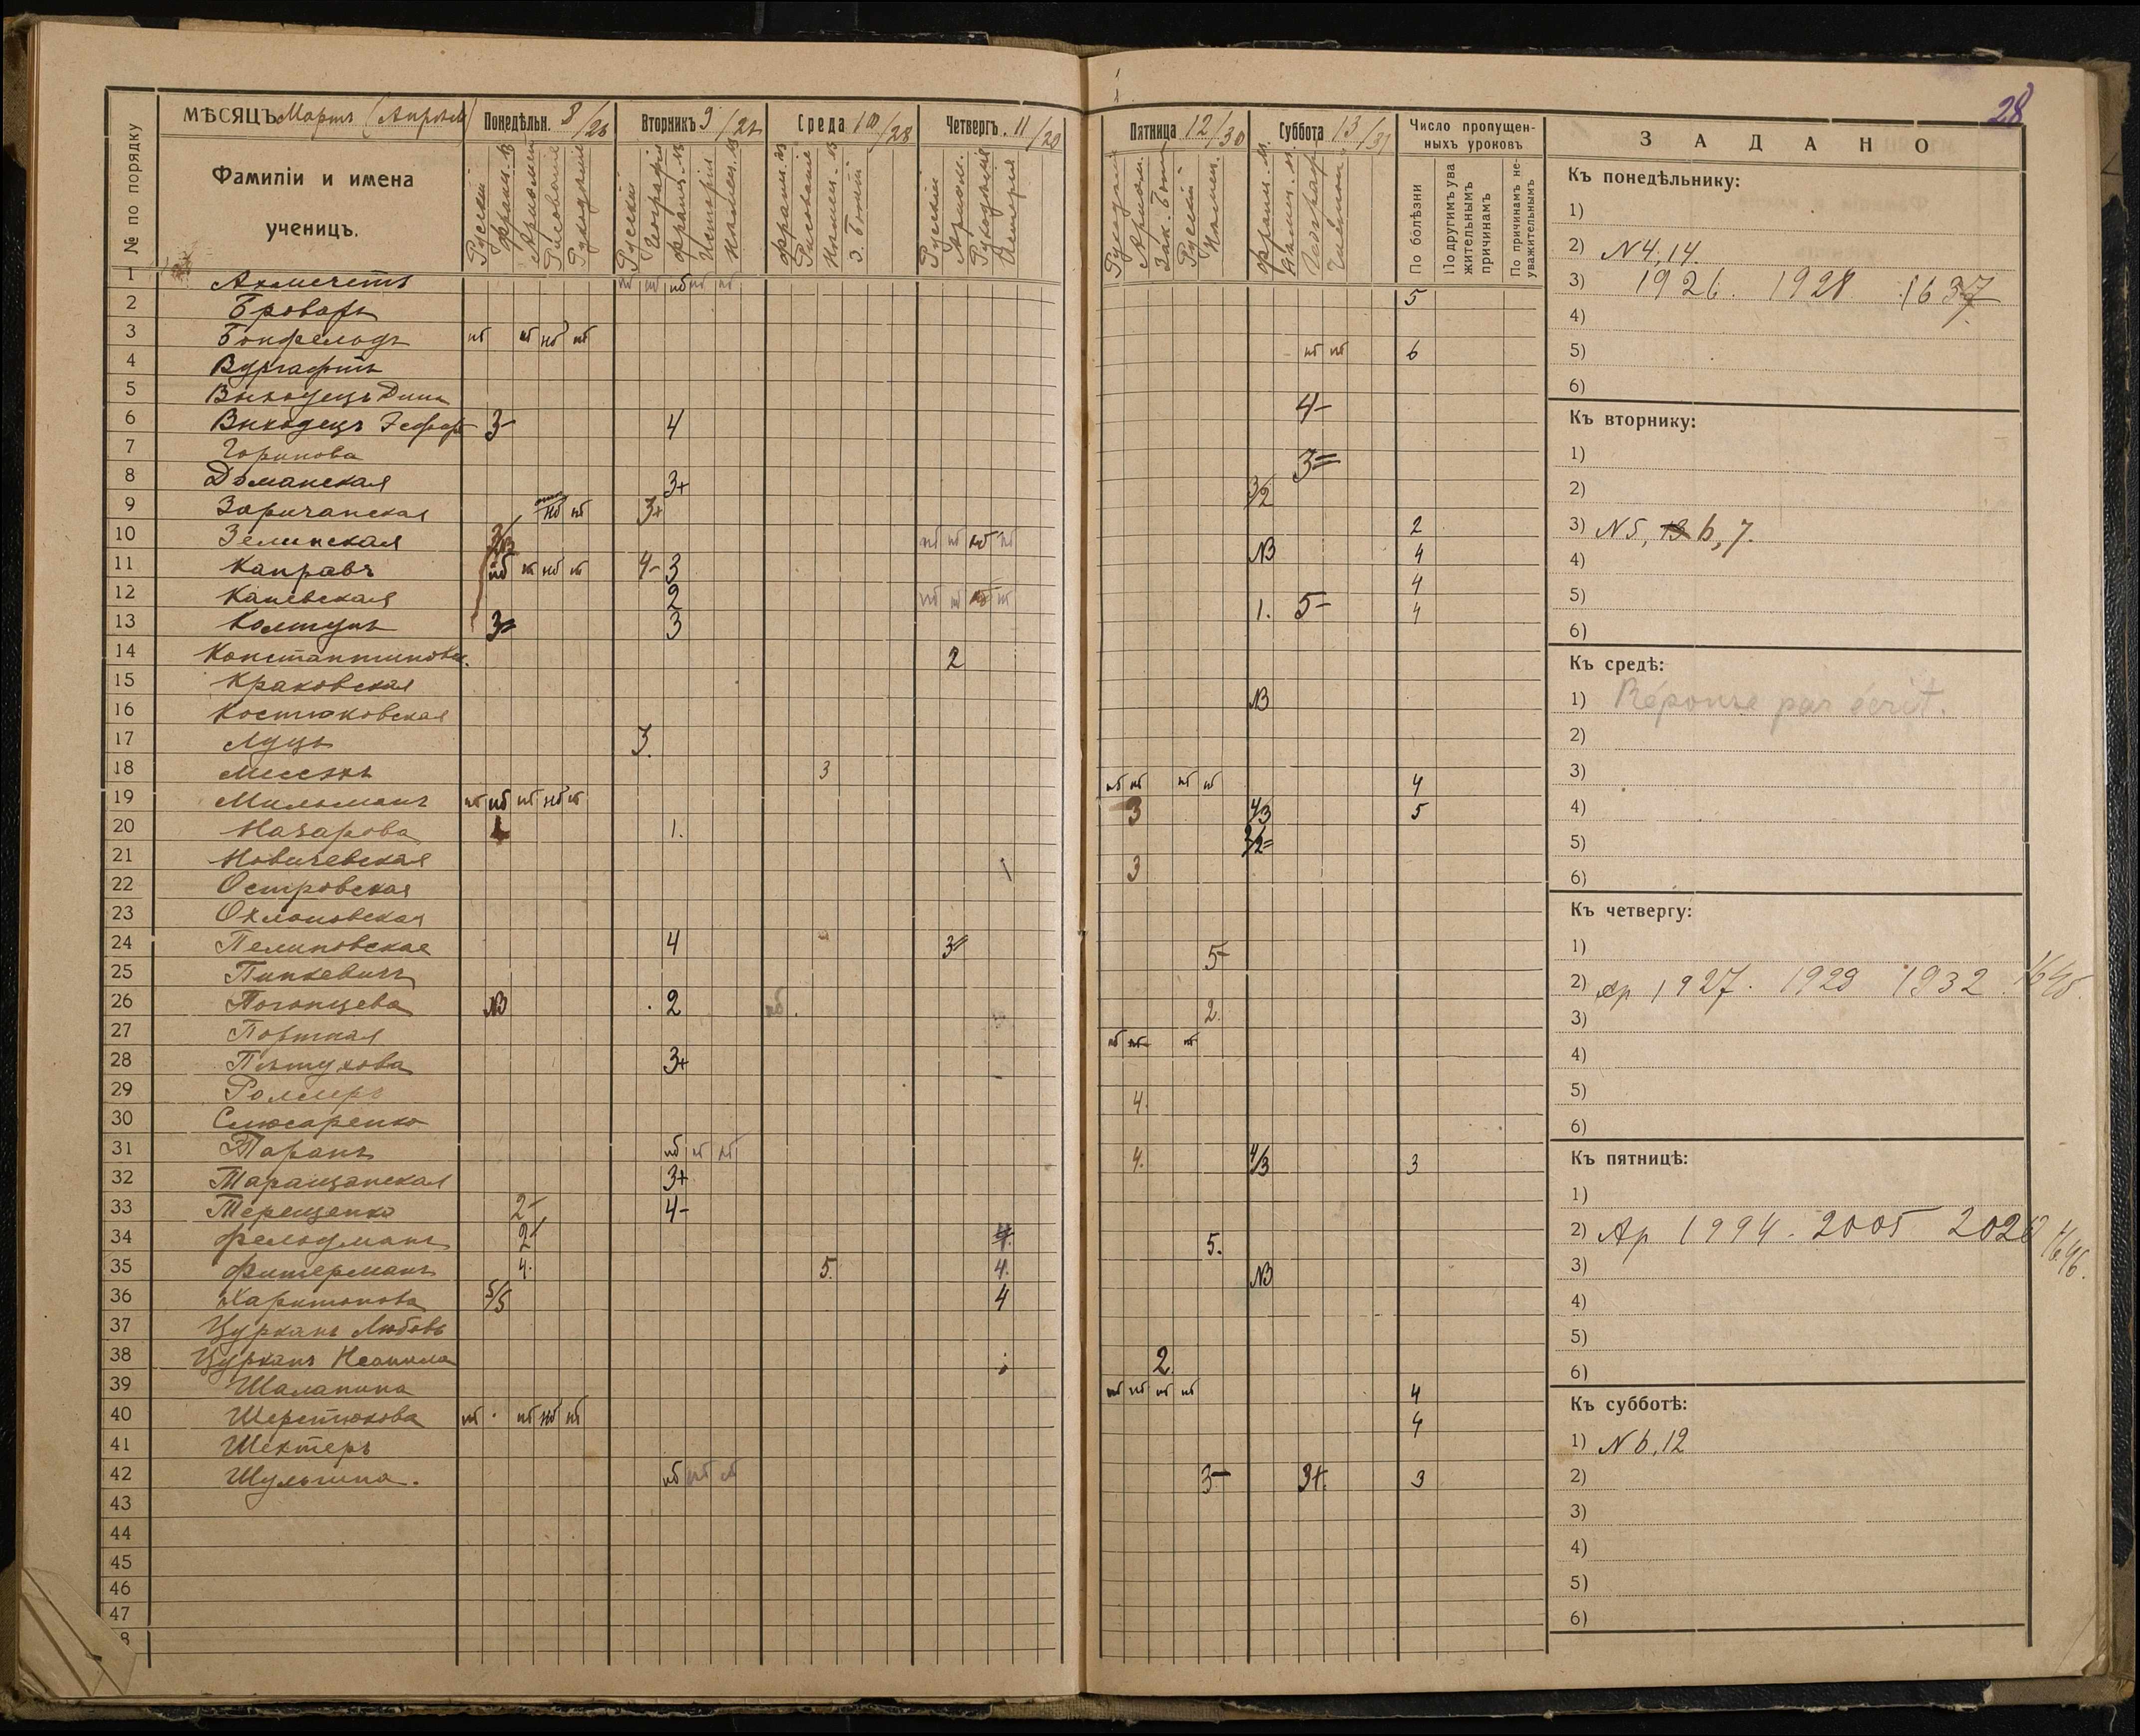 28
МѢСЯЦЪ Мартъ (Апрель)
Понедѣльн. 8/26
Вторникъ 9/27
Среда 10/28
Четвергъ 11/29
Пятница 12/30
Суббота 13/31
Число пропущенныхъ уроковъ
З А Д А Н О
№ по порядку
Фамиліи и имена
ученицъ.
Русскій
Франц. яз
Рисованіе
Рукодѣліе
Русскій
Географія
Франц. яз
Исторія
Нѣмец. яз
Франц. яз
Рисованіе
Нѣмец. яз
З. Божій
Русскій
Рукодѣліе
Исторія
Зак. Бож
Русскій
Нѣмец.
Франц. яз.
Нѣмец. яз.
Географ
По болѣзни
По другимъ уважительнымъ причинамъ
По причинамъ неуважительнымъ
1 нб нб нб нб нб 5
2 Броваръ
3 нб нб нб нб нб нб 6
4 Вургафтъ
5 Выходецъ Дина 4-
6 Выходецъ 3- 4
7 Горинова 3=
8 Доманская 3+ 3/2
9 Заричанская нб нб 3+ 2
10 Зелинская нб нб нб нб NB 4
11 Каправъ нб нб нб нб 4- 3 4
12 Каневская 2 нб нб нб нб 1. 5- 4
13 Колтунъ 3= 3
14 Константиновск. 2
15 Краковская NB
16 Костюковская
17 Луцъ 3.
18 3 нб нб нб нб 4
19 Мильманъ нб нб нб нб нб 3 4/3 5
20 Назарова 1. 3/2=
21 Новичевская 3
22 Островская
23
24 Пелиповская 4 3= 5-
25 Пинкевичъ
26 Погонцева NB 2 нб 2.
27 Портная нб нб нб
28 Пѣтухова 3+
29 4.
30 Слюсаренко
31 Таранъ нб нб нб 4. 4/3 3
32 Таращанская 3+
33 Терещенко 2- 4-
34 Фельдманъ 2 4. 5.
35 Фитерманъ 4. 5. 4. NB
36 Харитонова 5/5 4
37 Цурканъ Любовь
38 Цурканъ Неонила 2.
39 Шалапина нб нб нб нб 4
40 Шерстюкова нб нб нб нб 4
41 Шехтеръ
42 Шульгина. нб нб нб 3- 3+. 3
43
44
45
46
47
8
Къ понедѣльнику:
1)
2) N 4, 14.
3) 1926. 1928 1637
4)
5)
6)
Къ вторнику:
1)
2)
3) N 5, 6, 7.
4)
5)
6)
Къ средѣ:
1) Réponse par écrit.
2)
3)
4)
5)
6)
Къ четвергу:
1)
2) Ар 1927. 1929 1932. 1645.
3)
4)
5)
6)
Къ пятницѣ:
1)
2) Ар 1994. 2005 2020 1646.
3)
4)
5)
6)
Къ субботѣ:
1) N 6, 12
2)
3)
4)
5)
6)